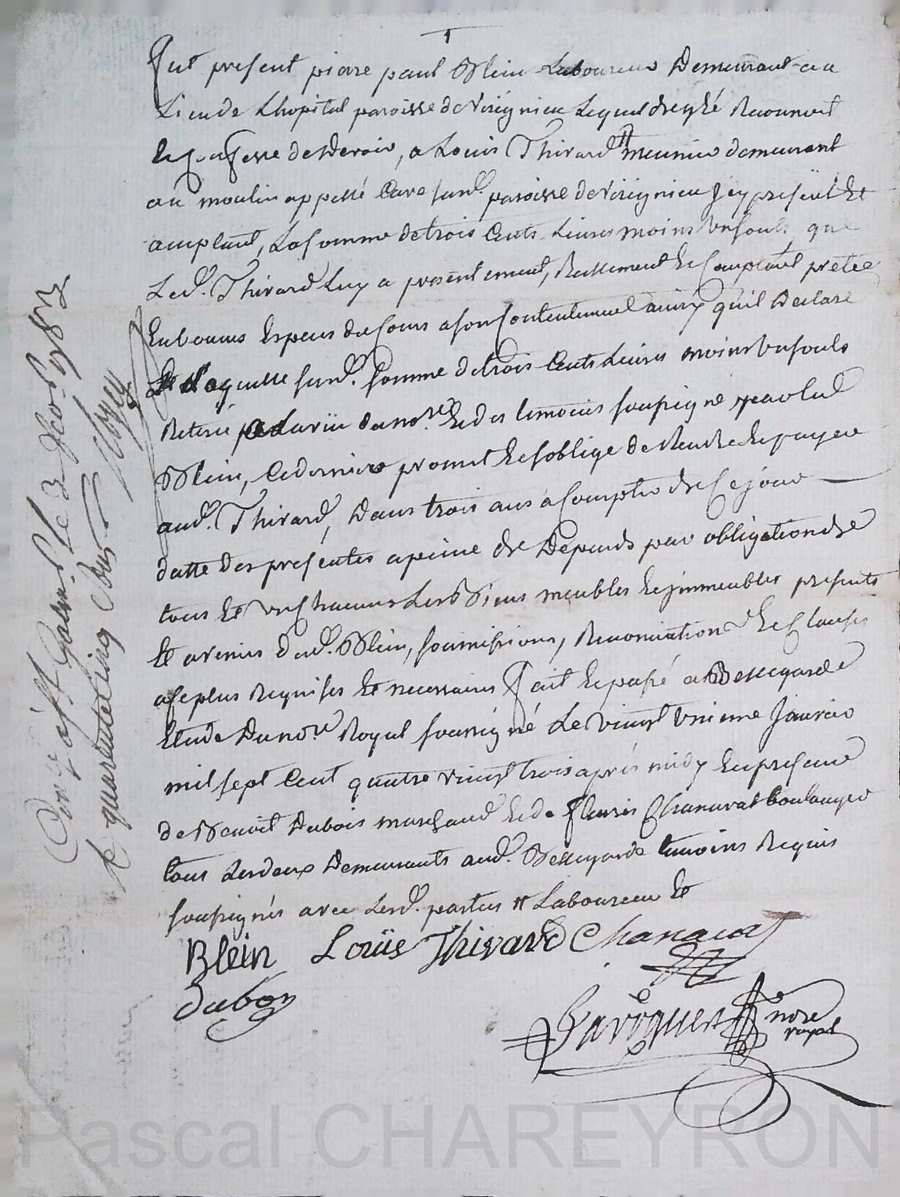 fut present pierre paul Blein Laboureur Demeurant au
Lieu de Lhopital paroisse de Virignieu Lequel de gré Reconnoit
et Confesse de devoir, a Louis Thirard meunier demeurant
au moulin appellé Care susd. paroisse de Virignieu Jcy present Et
aceptant, La somme de trois Cents Livres moins un souls que
Led. Thirard Luy a presentement, Reellement et Comptant pretée
En bonnes Especes du Cours a son Contentement ainsy quil Declare
et laquelle susd. somme de trois Cents Livres moins un souls
Retiré a la vüe du nore. et des temoins soussigné par led
Blein, Ce dernier promet et soblige de Rendre et payer
aud. Thirard, Dans trois ans a Compter de Ce jour
datte des presentes a peine de Depends par obligation de
tous Et un chacuns Les Biens meubles et jmmeubles presents
Et avenir dud. Blein, soumissions, Renonciation et Clauses
a ce plus Requises Et necessaires fait et passé a Bellegarde
Etude du nore. Royal soussigné Le vingt unieme Janvier
mil sept Cent quatre vingt trois après midy En presence
de Benoit Dubois marchand et de fleuris Chanavat boulanger
tous Lesdeux Demeurants aud. Bellegarde temoins Requis
soussignés avec Lesd. parties # Laboureur Et
Blein Louïs Thirard Chanavat
duboy
nore
royal
le 3
1783
quarante cinq sous
Pascal CHAREYRON